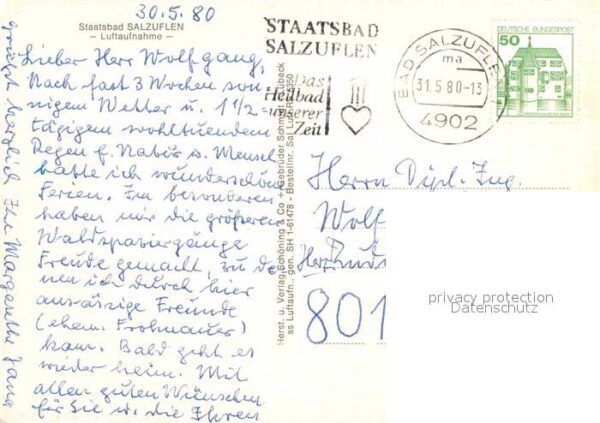 30.5.80
Staatsbad SALZUFLEN
– Luftaufnahme –
Lieber Herr Wolfgang,
Nach fast 3 Wochen son-
nigem Wetter u. 1 1/2-
tägigem wohltuendem
Regen f. Natur u. Mensch
hatte ich wunderschöne
Ferien. Im besonderen
haben mir die größeren
Waldspaziergänge
Freude gemacht, zu de-
nen ich durch hier
ansässige Freunde
(ehem. Frohnauer)
kam. Bald geht es
wieder heim. Mit
allen guten Wünschen
für Sie u. die Ihren
grüßt herzlich Ihre Margarethe
Herst. u. Verlag Schöning & Co + Gebrüder Schmidt, Lübeck
ss Luftaufn., gen. SH 1-61478 - Bestellnr. Sal Lu
STAATSBAD
SALZUFLEN
Das
Heilbad
unserer
Zeit
BAD SALZUFLE
ma
31.5.80-13
4902
DEUTSCHE BUNDESPOST
50
Herrn Dipl. Ing.
Wolf
801
privacy protection
Datenschutz